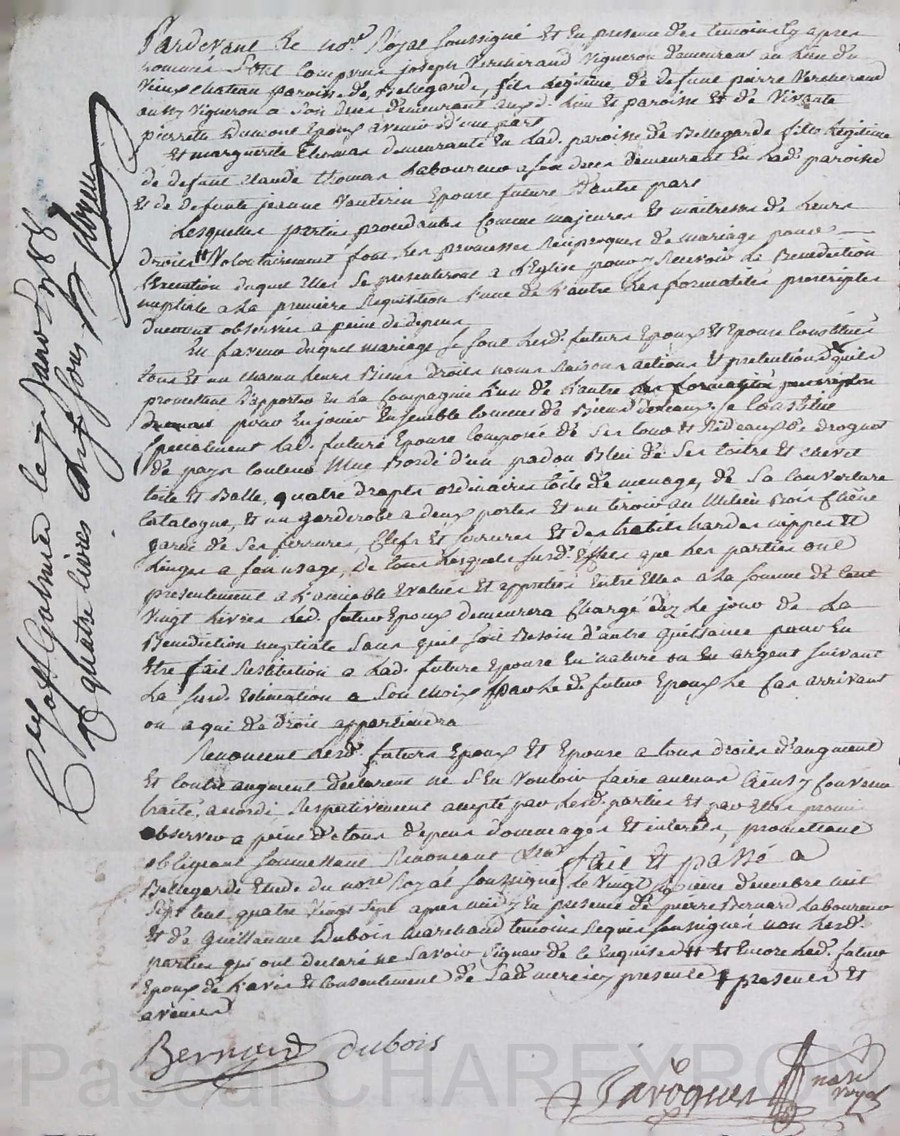 Pardevant le no.re Royal soussigné Et En presence des temoins cy apres
nommés sont comparus joseph Vercherand Vigneron demeurant au lieu du
Vieux chateau paroisse de Bellegarde, fils Legitime de defunt pierre Vercherand
aussy Vigneron a son deces demeurant auxd. lieu Et paroisse Et de Vivante
pierrette Dumont Epoux avenir d'une part
Et marguerite Thomas demeurante En lad. paroisse de Bellegarde fille Legitime
de defunt claude Thomas Laboureur a son deces demeurant En lad. paroisse
Et de defunte jeanne Epouse future d'autre part
Lesquelles parties procedantes Comme majeures Et maitresses de Leurs
droits Volontairement font Les promesses Reciproques de mariage pour
Execution duquel Elles se presenteront a l'Eglise pour y Recevoir la Benediction
nuptiale a la premiere Requisition l'une de l'autre Les formalités prescriptes
duement observées a peine de depens
En faveur duquel mariage se sont Lesd. futurs Epoux Et Epouse Constitués
tous Et un chacun Leurs Biens droits noms Raisons actions Et pretentions qu'ils
promettent d'apporter En la Compagnie l'un de l'autre
pour En jouir Ensemble comme de Biens se Constitue
specialement Lad. future Epouse composée de Ses tour de Rideaux de droguet
de pays couleur Bordé d'un padou Bleu de Ses Et chevet
toile Et Balle, quatre draps ordinaires toile de menage, de sa couverture
Catalogne, Et un garderobe a deux portes Et un tiroir au Milieu Bois chêne
garni de Ses ferrures, Clefs Et serrures Et des habits hardes nippes Et
Linges a son usage, de tous Lesquels susd. Effets que Les parties ont
presentement a l'amiable Evalués Et appreciés Entre Elles a la somme de Cent
Vingt Livres Led. futur Epoux demeurera Chargé dez Le jour de La
Benediction nuptiale Sans quil soit Besoin d'autre quittance pour En
Etre fait Restitution a Lad. future Epouse En nature ou En argent suivant
La susd. Estimation a Son choix par Led. futur Epoux Le Cas arrivant
ou a qui de droit appartiendra
Renoncent Lesd. futurs Epoux Et Epouse a tous droits d'augment
Et contre augment declarent ne s'En Vouloir faire aucuns Convenu
traité, accordé, Respectivement accepté par Lesd. parties Et par Elles promis
observer a peine de tous depens dommages Et interets, promettant
obligeant soumettant Renonçant fait Et passé a
Bellegarde Etude du no.re Royal soussigné, Le Vingt decembre mil
Sept Cent quatre Vingt Sept apres midy En presence de pierre Bernard Laboureur
Et de Guillaume Dubois marchand temoins soussignés non Lesd.
parties qui ont declaré ne savoir Signer de ce Enquises Et Encore Led. futur
Epoux de l'avis Et Consentement de Sad. mere presente presents Et
avenir
Bernard dubois
Javogues
no.re
royal
C.lé a St Galmier le janv. 1788
quatre livres dix sous
Pascal CHAREYRON